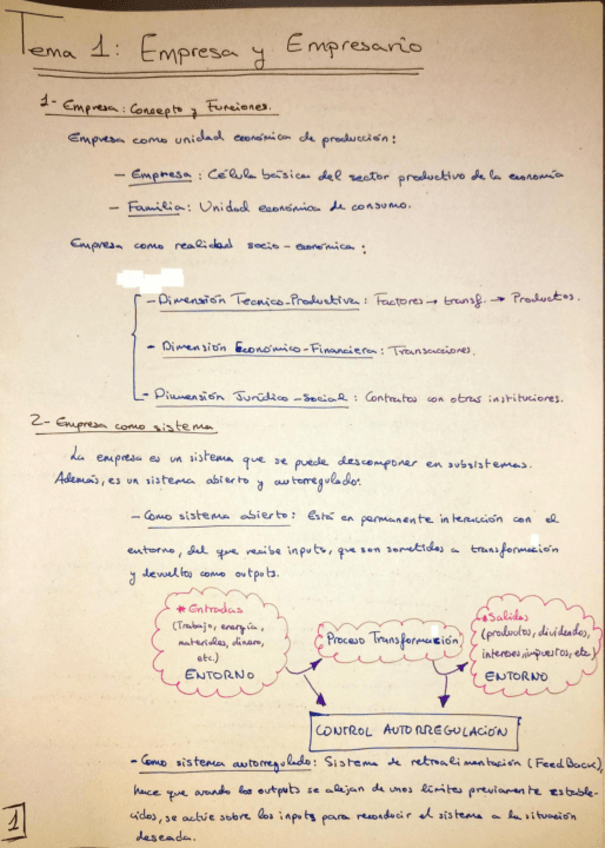 Tema 1: Empresa y Empresario
1- Empresa: Concepto y Funciones.
Empresa como unidad económica de producción:
- Empresa: Célula básica del sector productivo de la economía
- Familia: Unidad económica de consumo.
Empresa como realidad socio-económica:
- Dimensión Tecnico-Productiva: Factores → transf. → Productos.
- Dimensión Económico-Financiera: Transacciones.
- Dimensión Jurídico-Social: Contratos con otras instituciones.
2- Empresa como sistema
La empresa es un sistema que se puede descomponer en subsistemas.
Además, es un sistema abierto y autorregulado:
- Como sistema abierto: Está en permanente interacción con el
entorno, del que recibe inputs, que son sometidos a transformación
y devueltos como outputs.
* Entradas
(Trabajo, energía,
materiales, dinero,
etc.)
ENTORNO
Proceso Transformación
* Salidas
(productos, dividendos,
intereses, impuestos, etc)
ENTORNO
CONTROL AUTORREGULACIÓN
- Como sistema autorregulado: Sistema de retroalimentación (FeedBack),
hace que cuando los outputs se alejan de unos límites previamente estable-
cidos, se actúe sobre los inputs para reconducir el sistema a la situación
deseada.
1